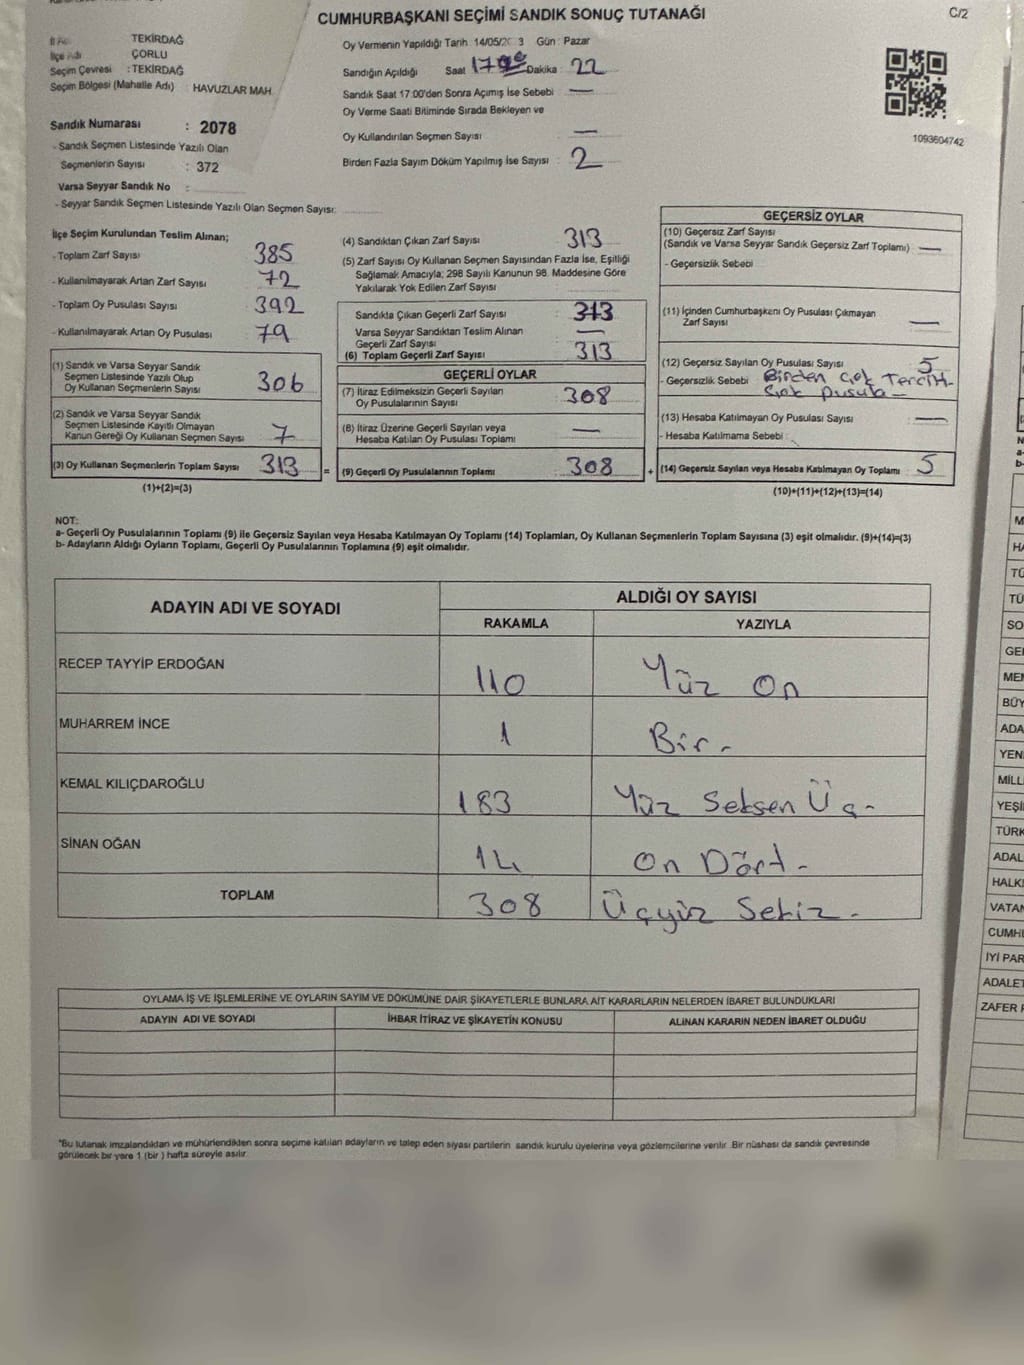 CUMHURBAŞKANI SEÇİMİ SANDIK SONUÇ TUTANAĞI
C/2
TEKİRDAĞ
ÇORLU
Seçim Çevresi : TEKİRDAĞ
Seçim Bölgesi (Mahalle Adı) : HAVUZLAR MAH
Sandık Numarası : 2078
- Sandık Seçmen Listesinde Yazılı Olan
Seçmenlerin Sayısı : 372
Varsa Seyyar Sandık No :
- Seyyar Sandık Seçmen Listesinde Yazılı Olan Seçmen Sayısı:
Oy Vermenin Yapıldığı Tarih : 14/05/2023 Gün : Pazar
Sandığın Açıldığı Saat 17 Dakika : 22
Sandık Saat 17:00'den Sonra Açımış İse Sebebi : —
Oy Verme Saati Bitiminde Sırada Bekleyen ve
Oy Kullandırılan Seçmen Sayısı : —
Birden Fazla Sayım Döküm Yapılmış İse Sayısı : 2
1093604742
İlçe Seçim Kurulundan Teslim Alınan;
- Toplam Zarf Sayısı : 385
- Kullanılmayarak Artan Zarf Sayısı : 72
- Toplam Oy Pusulası Sayısı : 392
- Kullanılmayarak Artan Oy Pusulası : 79
(1) Sandık ve Varsa Seyyar Sandık
Seçmen Listesinde Yazılı Olup
Oy Kullanan Seçmenlerin Sayısı : 306
(2) Sandık ve Varsa Seyyar Sandık
Seçmen Listesinde Kayıtlı Olmayan
Kanun Gereği Oy Kullanan Seçmen Sayısı : 7
(3) Oy Kullanan Seçmenlerin Toplam Sayısı : 313
(1)+(2)=(3)
(4) Sandıktan Çıkan Zarf Sayısı : 313
(5) Zarf Sayısı Oy Kullanan Seçmen Sayısından Fazla İse, Eşitliği
Sağlamak Amacıyla; 298 Sayılı Kanunun 98. Maddesine Göre
Yakılarak Yok Edilen Zarf Sayısı :
Sandıkta Çıkan Geçerli Zarf Sayısı : 313
Varsa Seyyar Sandıktan Teslim Alınan
Geçerli Zarf Sayısı : —
(6) Toplam Geçerli Zarf Sayısı : 313
GEÇERLİ OYLAR
(7) İtiraz Edilmeksizin Geçerli Sayılan
Oy Pusulalarının Sayısı : 308
(8) İtiraz Üzerine Geçerli Sayılan veya
Hesaba Katılan Oy Pusulası Toplamı : —
= (9) Geçerli Oy Pusulalarının Toplamı : 308
GEÇERSİZ OYLAR
(10) Geçersiz Zarf Sayısı
(Sandık ve Varsa Seyyar Sandık Geçersiz Zarf Toplamı) : —
- Geçersizlik Sebebi :
(11) İçinden Cumhurbaşkanı Oy Pusulası Çıkmayan
Zarf Sayısı : —
(12) Geçersiz Sayılan Oy Pusulası Sayısı : 5
- Geçersizlik Sebebi : Birden Çok Tercih-
Çok pusula -
(13) Hesaba Katılmayan Oy Pusulası Sayısı : —
- Hesaba Katılmama Sebebi :
+ (14) Geçersiz Sayılan veya Hesaba Katılmayan Oy Toplamı : 5
(10)+(11)+(12)+(13)=(14)
NOT:
a- Geçerli Oy Pusulalarının Toplamı (9) ile Geçersiz Sayılan veya Hesaba Katılmayan Oy Toplamı (14) Toplamları, Oy Kullanan Seçmenlerin Toplam Sayısına (3) eşit olmalıdır. (9)+(14)=(3)
b- Adayların Aldığı Oyların Toplamı, Geçerli Oy Pusulalarının Toplamına (9) eşit olmalıdır.
ADAYIN ADI VE SOYADI
ALDIĞI OY SAYISI
RAKAMLA YAZIYLA
RECEP TAYYİP ERDOĞAN 110 Yüz On
MUHARREM İNCE 1 Bir -
KEMAL KILIÇDAROĞLU 183 Yüz Seksen Üç -
SİNAN OĞAN 14 On Dört -
TOPLAM 308 Üçyüz Sekiz -
OYLAMA İŞ VE İŞLEMLERİNE VE OYLARIN SAYIM VE DÖKÜMÜNE DAİR ŞİKAYETLERLE BUNLARA AİT KARARLARIN NELERDEN İBARET BULUNDUKLARI
ADAYIN ADI VE SOYADI İHBAR İTİRAZ VE ŞİKAYETİN KONUSU ALINAN KARARIN NEDEN İBARET OLDUĞU
*Bu tutanak imzalandıktan ve mühürlendikten sonra seçime katılan adayların ve talep eden siyasi partilerin sandık kurulu üyelerine veya gözlemcilerine verilir. Bir nüshası da sandık çevresinde
görülecek bir yere 1 (bir) hafta süreyle asılır.
N
a-
b-
M
HA
TÜ
TÜ
SO
GE
MEM
BÜY
ADA
YEN
MİLL
YEŞİ
TÜRK
ADAL
HALK
VATAN
CUMHU
İYİ PAR
ADALET
ZAFER P